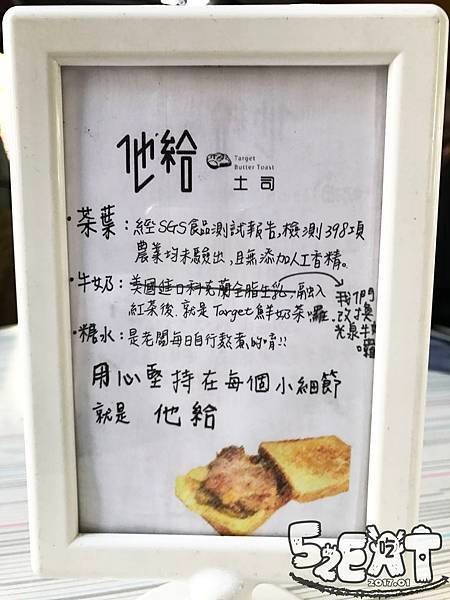 他給
Target
Butter Toast
土司
•茶葉：經SGS食品測試報告,檢測398項
農業均未驗出,且無添加人工香精。
•牛奶：美國進口科克蘭全脂生乳,融入
紅茶後.就是Target鮮奶茶囉.
我們
改換
光泉牛奶
囉
•糖水：是老闆每日自行熬煮的唷!!
用心堅持在每個小細節
就是 他給
52EAT
吃
2017.01